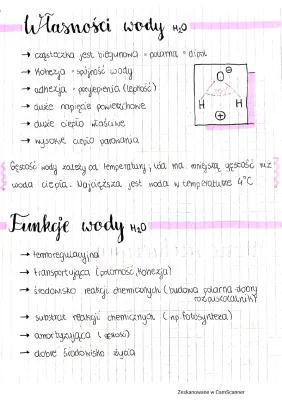 Własności wody H₂O
→ cząsteczka jest biegunowa = polarna = dipol
→ kohezja - spójność wody
→ adhezja - przylepienia (lepkość)
→ duże napięcie powierzchniowe
→ duże ciepło właściwe
→ wysokie ciepło parowania
O ⊖
H H
⊕
Gęstość wody zależy od temperatury, lód ma mniejszą gęstość niż
woda ciepła. Najcięższa jest woda w temperaturze 4°C
Funkcje wody H₂O
→ termoregulacyjna
→ transportująca (polarność, kohezja)
→ środowisko reakcji chemicznych (budowa polarna - dobry
rozpuszczalnik)
→ substrat reakcji chemicznych (np. fotosynteza)
→ amortyzująca (gęstość)
→ dobre środowisko życia
Zeskanowane w CamScanner